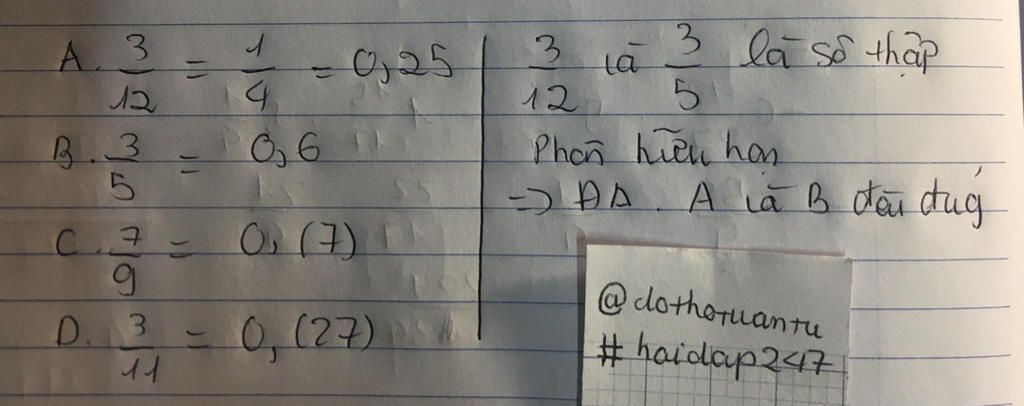 A. 3/12 = 1/4 = 0,25
B. 3/5 = 0,6
C. 7/9 = 0,(7)
D. 3/11 = 0,(27)
3/12 và 3/5 là số thập
phân hữu hạn
=> ĐA. A và B đều đúg
@dothotuantu
#hoidap247